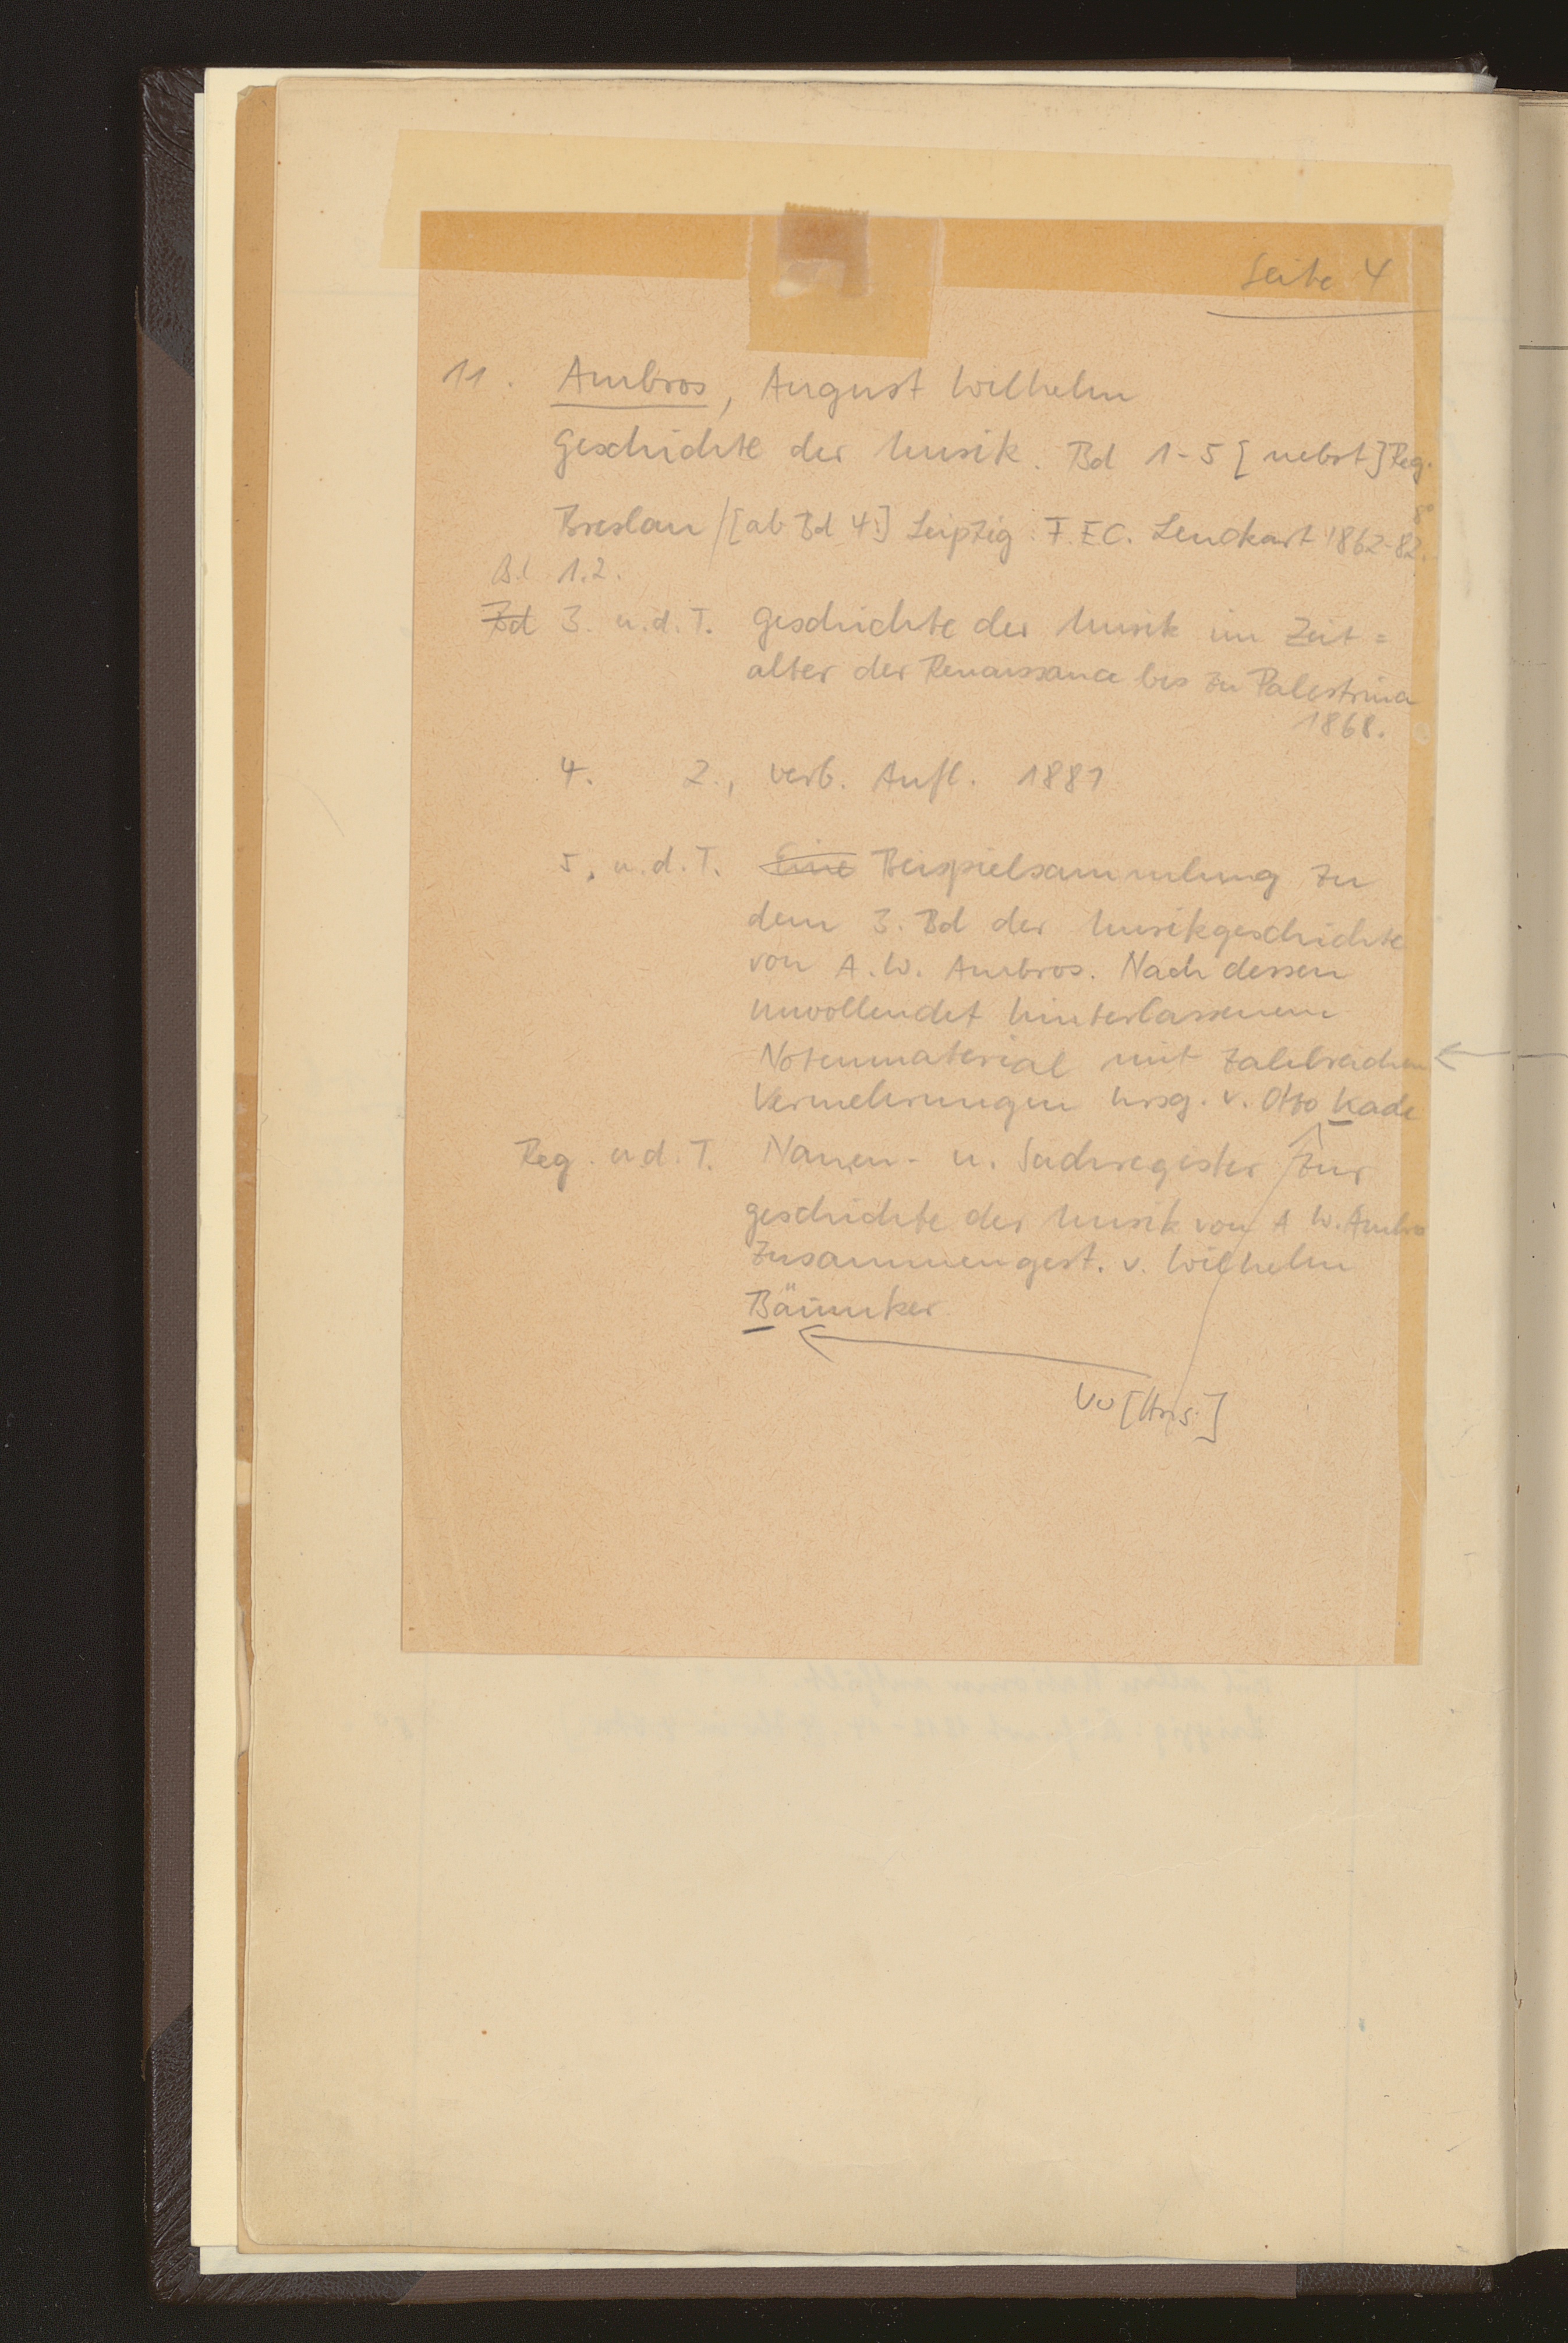 Seite 4
11. Ambros, August Wilhelm
Geschichte der Musik. Bd 1-5 [nebst] Reg.
8°
Breslau / [ab Bd 4:] Leipzig: F. E. C. Leuckart 1862-82.
Bd 1.2.
Bd 3. u. d. T. Geschichte der Musik im Zeit=
alter der Renaissance bis zu Palestrina
1868.
4. 2., verb. Aufl. 1881
5. u. d. T. Eine Beispielsammlung zu
dem 3. Bd der Musikgeschichte
von A. W. Ambros. Nach dessen
unvollendet hinterlassenem
Notenmaterial mit zahlreichen
Vermehrungen hrsg. v. Otto Kade
Reg. u. d. T. Namen- u. Sachregister zur
Geschichte der Musik von A. W. Ambros
Zusammengest. v. Wilhelm
Bäumker